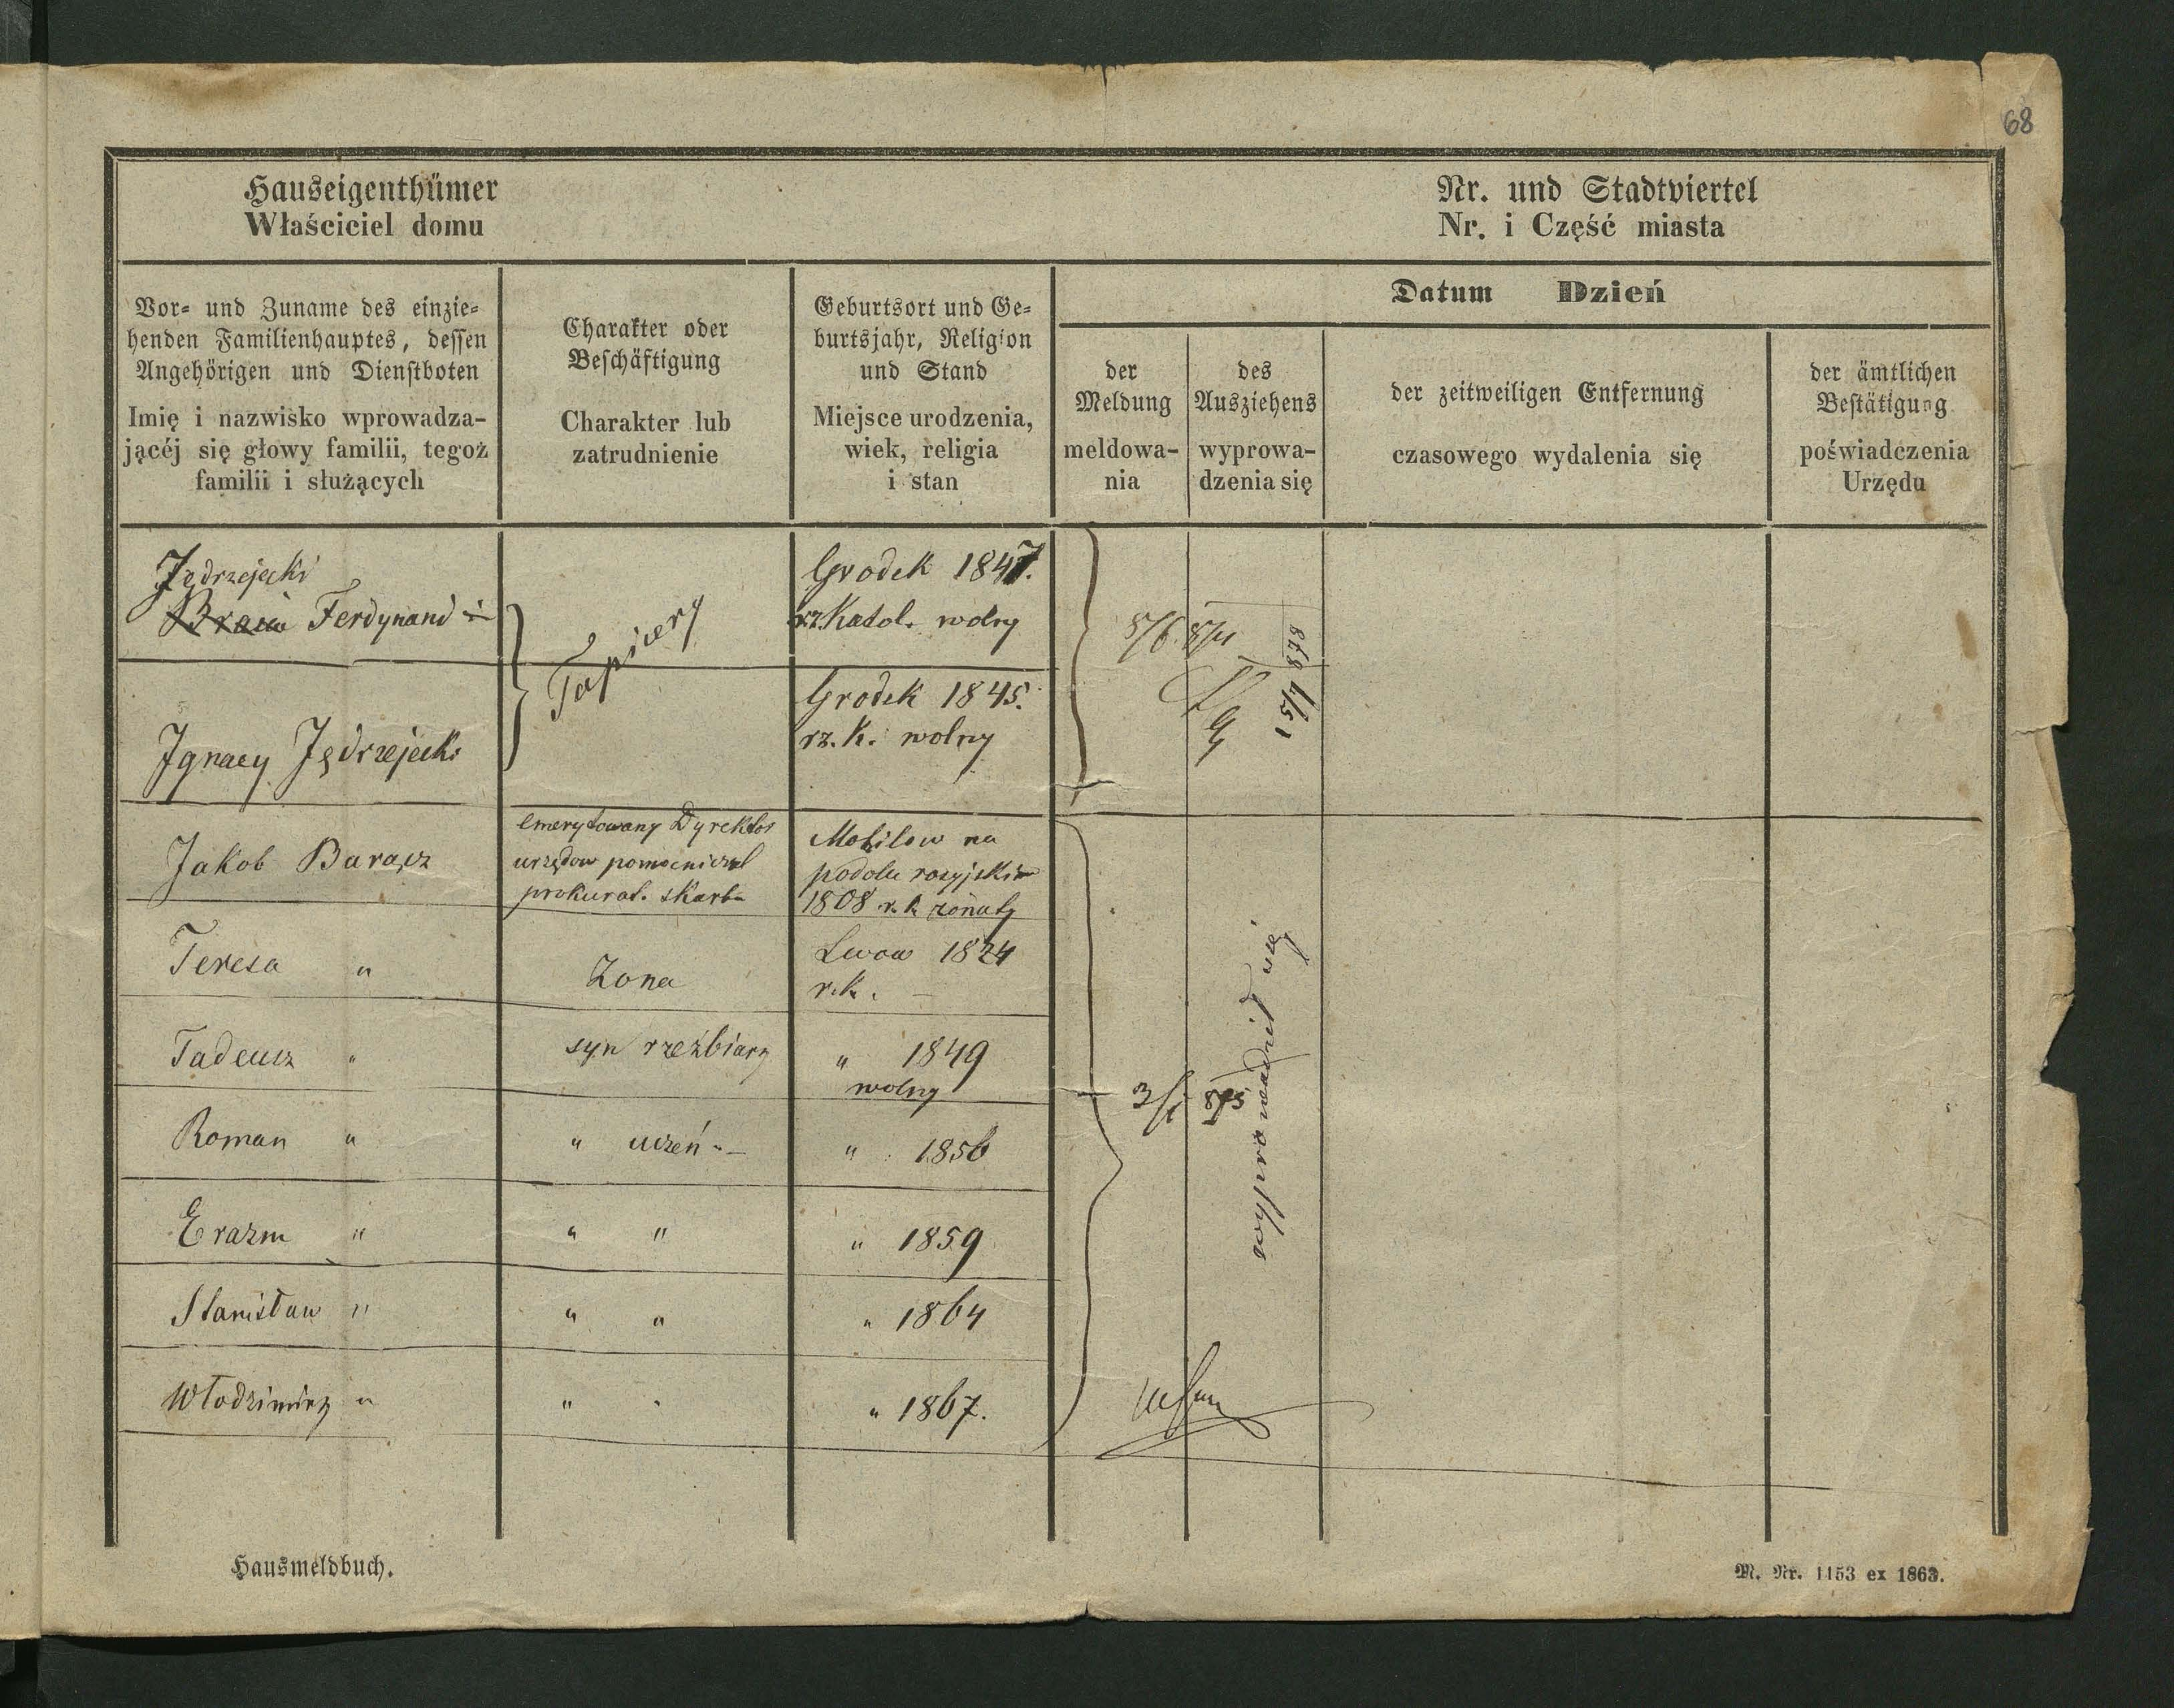 68
Hauseigenthümer
Właściciel domu
Nr. und Stadtviertel
Nr. i Część miasta
Vor- und Zuname des einzie-
henden Familienhauptes, dessen
Angehörigen und Dienstboten
Imię i nazwisko wprowadza-
jącéj się głowy familii, tegoż
familii i służących
Charakter oder
Beschäftigung
Charakter lub
zatrudnienie
Geburtsort und Ge-
burtsjahr, Religion
und Stand
Miejsce urodzenia,
wiek, religia
i stan
Datum Dzień
der
Meldung
meldowa-
nia
des
Ausziehens
wyprowa-
dzenia się
der zeitweiligen Entfernung
czasowego wydalenia się
der ämtlichen
Bestätigung
poświadczenia
Urzędu
Jędrzejecki
Ferdynand i
Tapicery
Grodek 1847.
rz. Katol. wolny
Ignacy Jędrzejecki
Grodek 1845.
rz. k. wolny
878
Jakob Barącz
emerytowany Dyrektor
urzędow pomocniczych
prokurat. skarbu
Mohilow na
podolu rosyjskim
1808 r. k. żonaty
Teresa "
Żona
Lwow 1824
r. k. —
Tadeusz "
syn rzeźbiarz
" 1849
wolny
3/1 875
wyprowadził się
Roman "
" uczeń "—
" 1856
Erazm "
" "
" 1859
Stanisław "
" "
" 1864
Włodzimirz "
" "
" 1867.
Hausmeldbuch.
M. Nr. 1153 ex 1863.